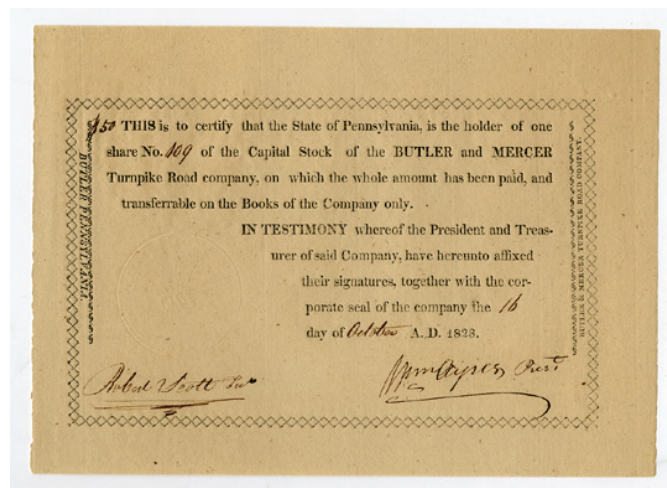 $50 THIS is to certify that the State of Pennsylvania, is the holder of one
share No. 109 of the Capital Stock of the BUTLER and MERCER
Turnpike Road company, on which the whole amount has been paid, and
transferrable on the Books of the Company only.
IN TESTIMONY whereof the President and Treas-
urer of said Company, have hereunto affixed
their signatures, together with the cor-
porate seal of the company the 16
day of October A.D. 1823.
Robert Scott
Presᵗ
BUTLER PENNSYLVANIA.
BUTLER & MERCER TURNPIKE ROAD COMPANY.